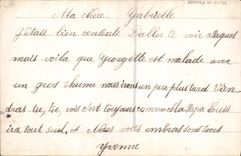 Ma chère Gabrielle
J'étais bien contente d'aller te voir à Pâques
mais voila que Georgette est malade avec
un gros rhume nous irons un peu plus tard Vien
dras tu, tu vois c'est toujours comme cela Papa Louis
ira tout seul, et Nous vous embrassons tous
Yvonne